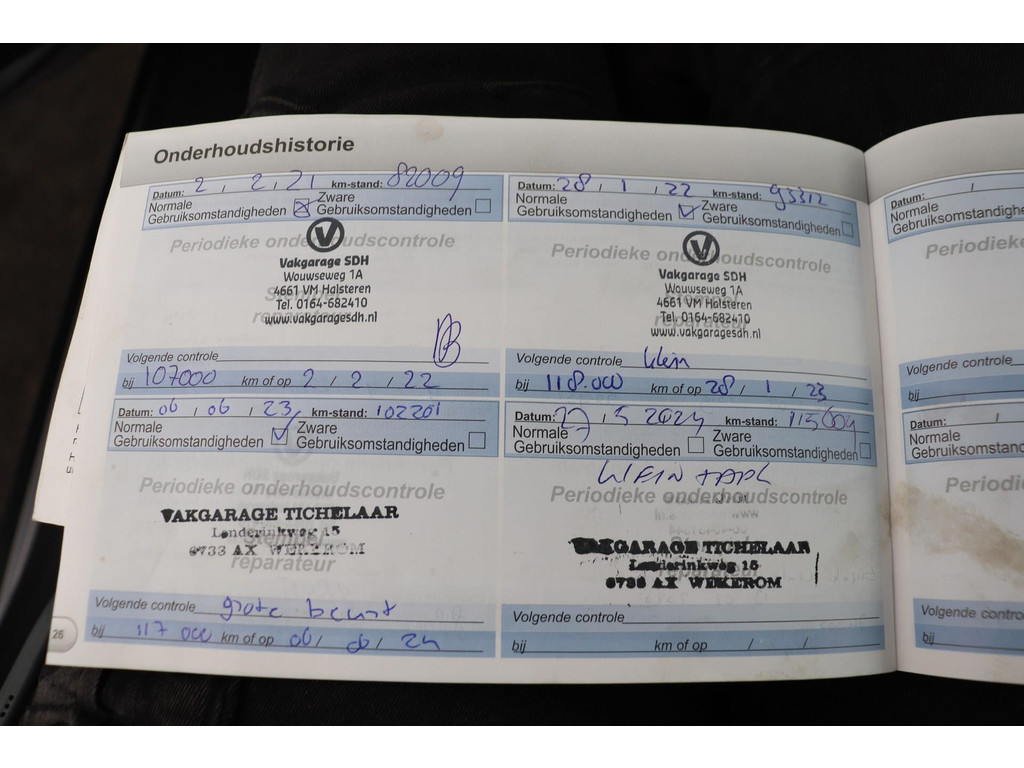 Onderhoudshistorie
Datum: 2 , 2 , 21 km-stand: 82009
Normale Gebruiksomstandigheden ☒ Zware Gebruiksomstandigheden ☐
Periodieke onderhoudscontrole
Vakgarage SDH
Wouwseweg 1A
4661 VM Halsteren
Tel. 0164-682410
www.vakgaragesdh.nl
Volgende controle
bij 107000 km of op 2 / 2 / 22
Datum: 28 , 1 , 22 km-stand: 95312
Normale Gebruiksomstandigheden ☑ Zware Gebruiksomstandigheden ☐
Periodieke onderhoudscontrole
Vakgarage SDH
Wouwseweg 1A
4661 VM Halsteren
Tel. 0164-682410
www.vakgaragesdh.nl
Volgende controle klein
bij 118.000 km of op 28 / 1 / 23
Datum: 06 , 06 , 23 km-stand: 102201
Normale Gebruiksomstandigheden ☑ Zware Gebruiksomstandigheden ☐
Periodieke onderhoudscontrole
VAKGARAGE TICHELAAR
Lunderinkweg 15
6733 AX WEKEROM
Stempel
reparateur
Volgende controle grote beurt
bij 117 000 km of op 06 / 06 / 24
Datum: 27 , 5 2024 km-stand: 115009
Normale Gebruiksomstandigheden ☐ Zware Gebruiksomstandigheden ☐
KLEIN
Periodieke onderhoudscontrole
VAKGARAGE TICHELAAR
Lunderinkweg 15
6733 AX WEKEROM
Volgende controle
bij km of op / /
26
Datum: /
Normale
Gebruiksomstandighe
Periodi
Volgende contro
bij
Datum: /
Normale
Gebruiksomstandigh
Periodi
Volgende contro
bij